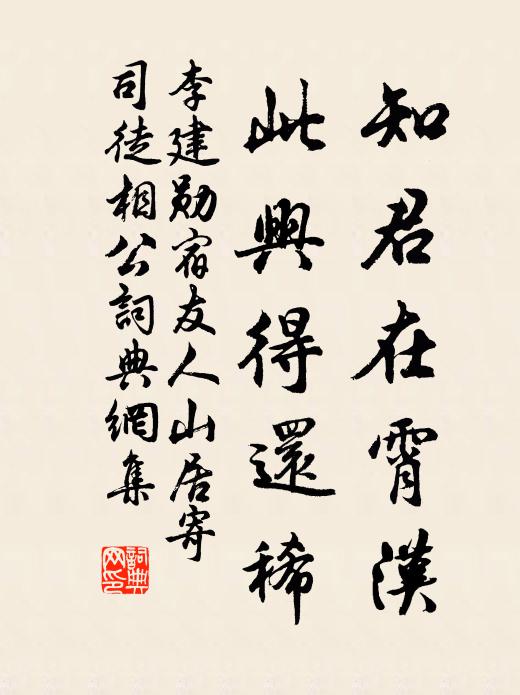 知君在霄漢
此興得還稀
李建勛宿友人山居寄
司徒相公詞典網集
詞典網印